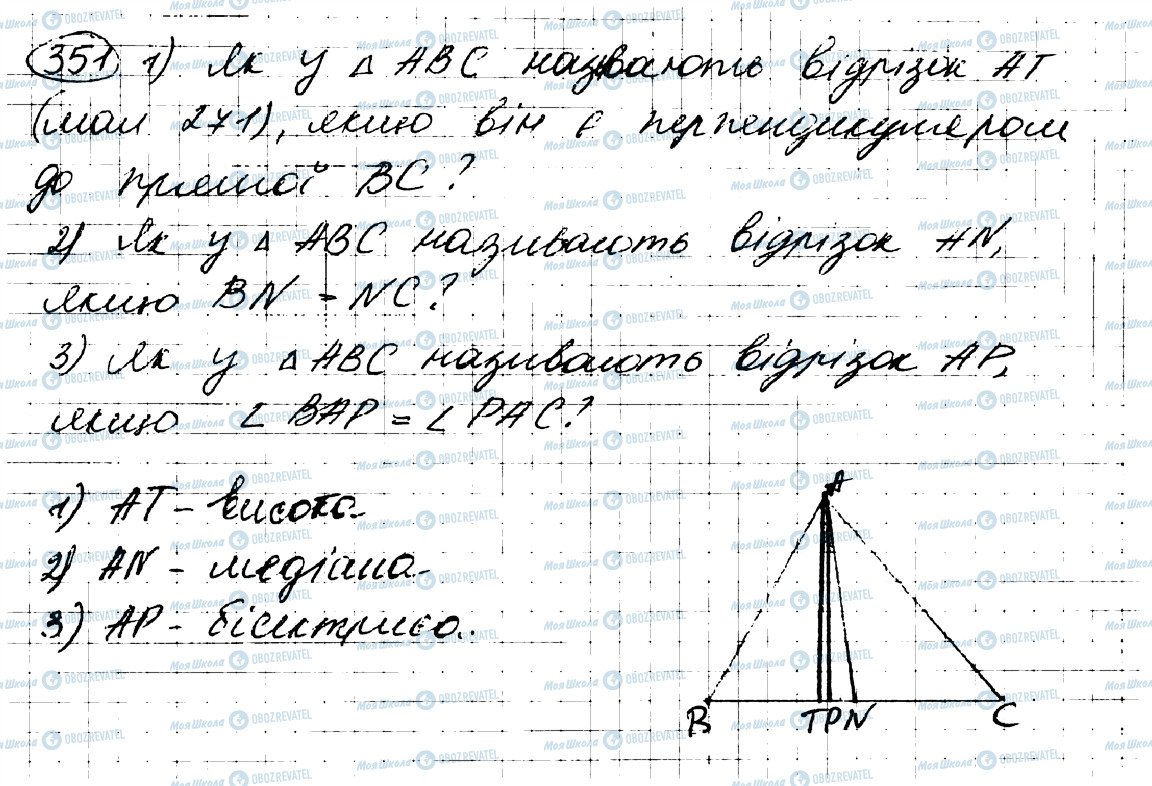 351 1) Як у △ ABC називають відрізок AT
(мал 271), якщо він є перпендикуляром
до прямої BC?
2) Як у △ ABC називають відрізок AN,
якщо BN = NC?
3) Як у △ ABC називають відрізок AP,
якщо ∠ BAP = ∠ PAC?
1) AT - висота
2) AN - медіана
3) AP - бісектриса.
A
B T P N C
Моя Школа OBOZREVATEL